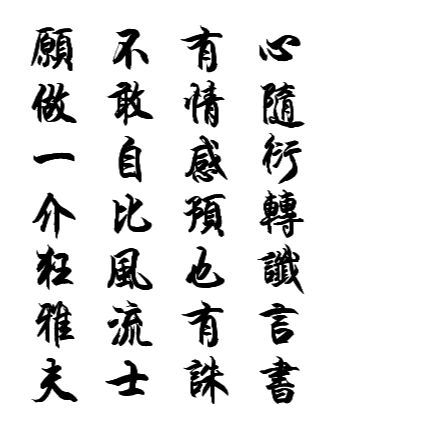 心隨衍轉讖言書
有情感預也有誅
不敢自比風流士
願做一介狂雅夫